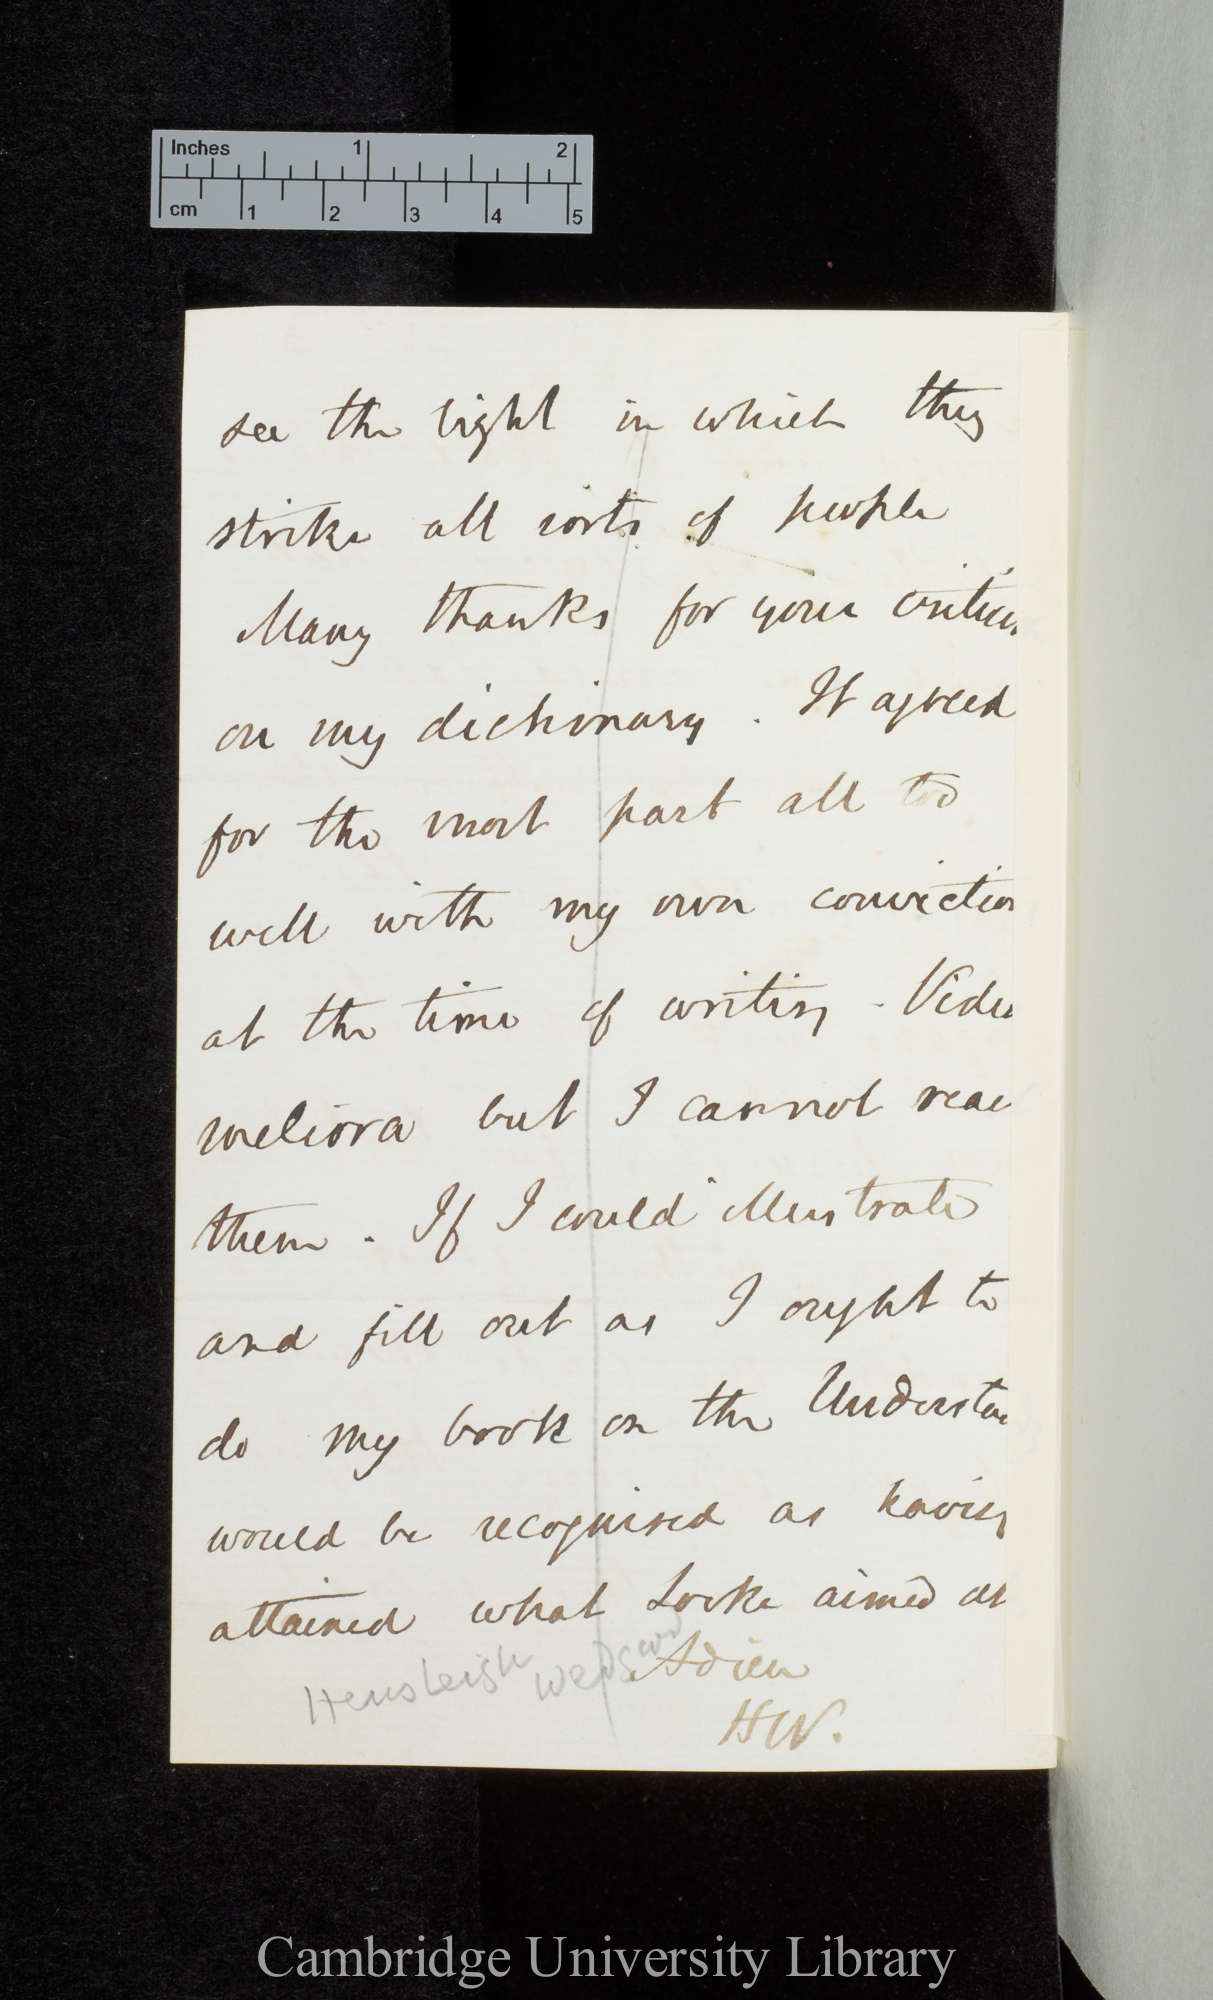 Inches 1 2
cm 1 2 3 4 5
see the light in which they
strike all sorts of people
Many thanks for your critici
on my dictionary. It agreed
for the most part all too
well with my own conviction
at the time of writing - Video
meliora but I cannot reac
them. If I could illustrate
and fill out as I ought to
do my book on the Understan
would be recognised as having
attained what Locke aimed at
Adieu
Hensleigh Wedgwood
HW.
Cambridge University Library